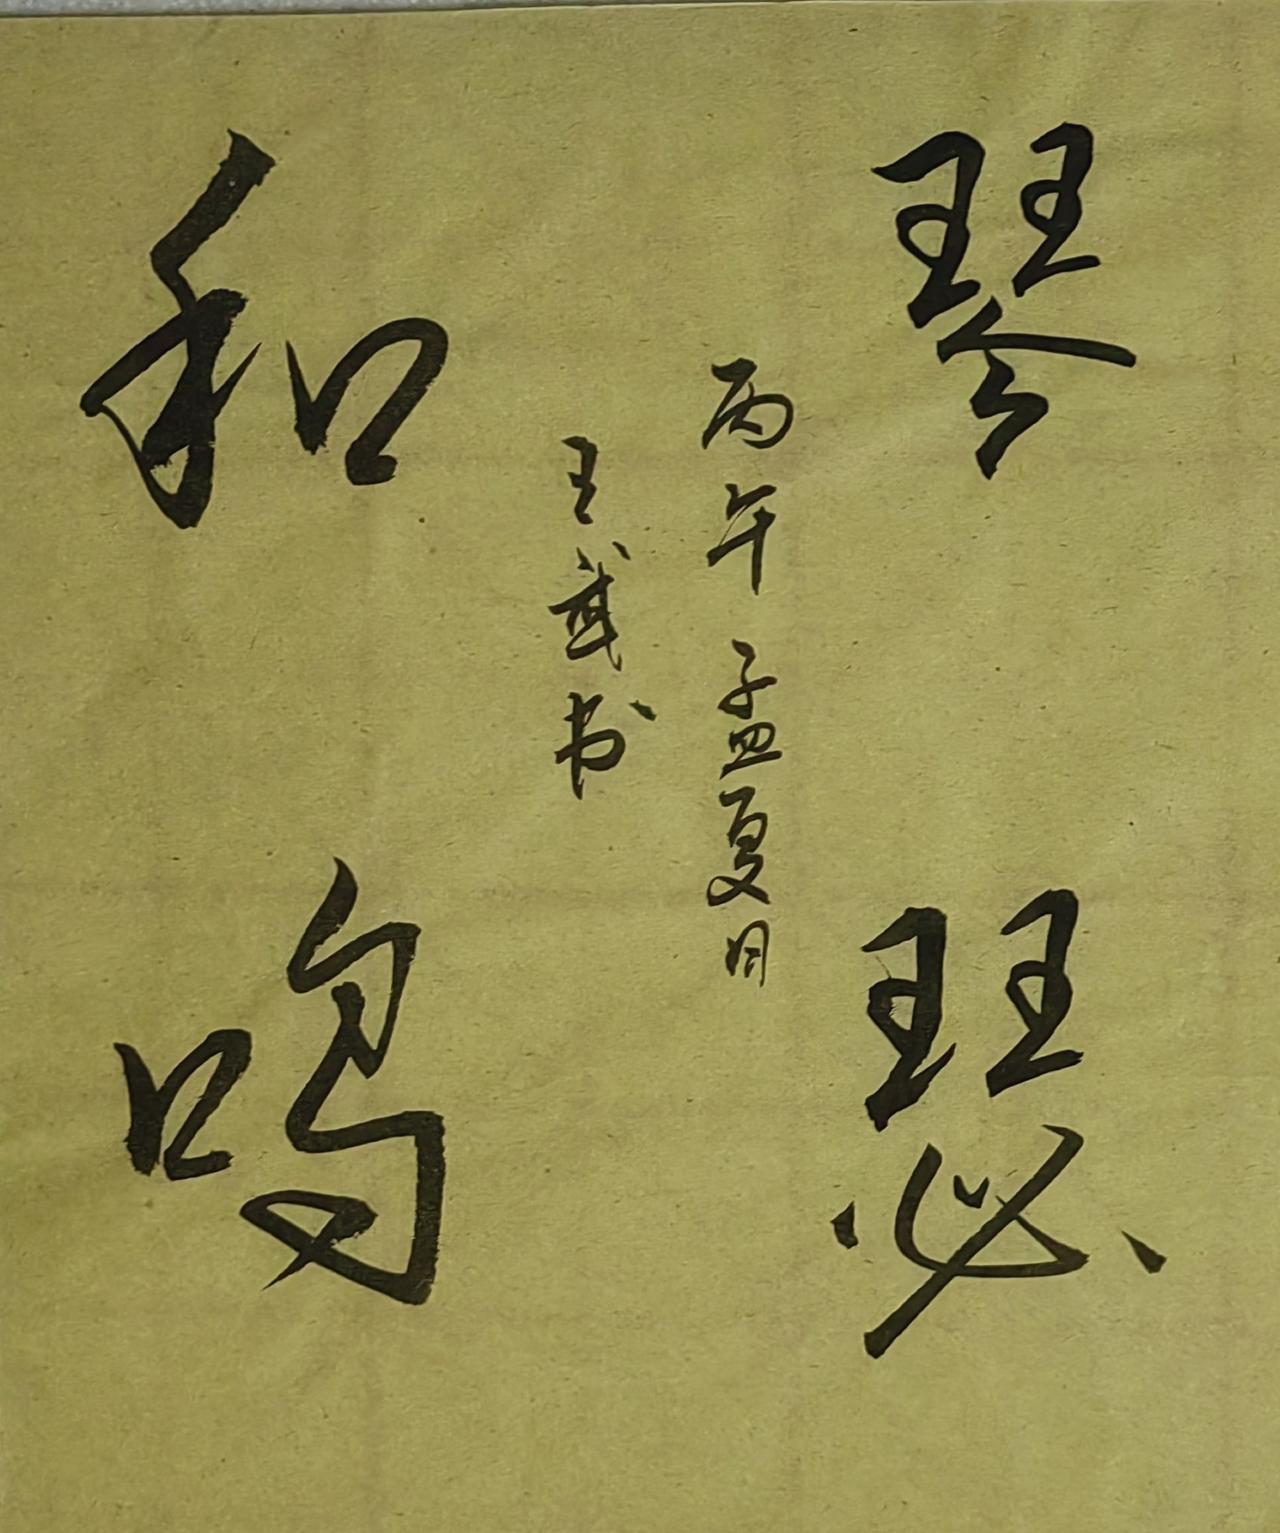 琴瑟
丙午孟夏月
王武书
和鸣